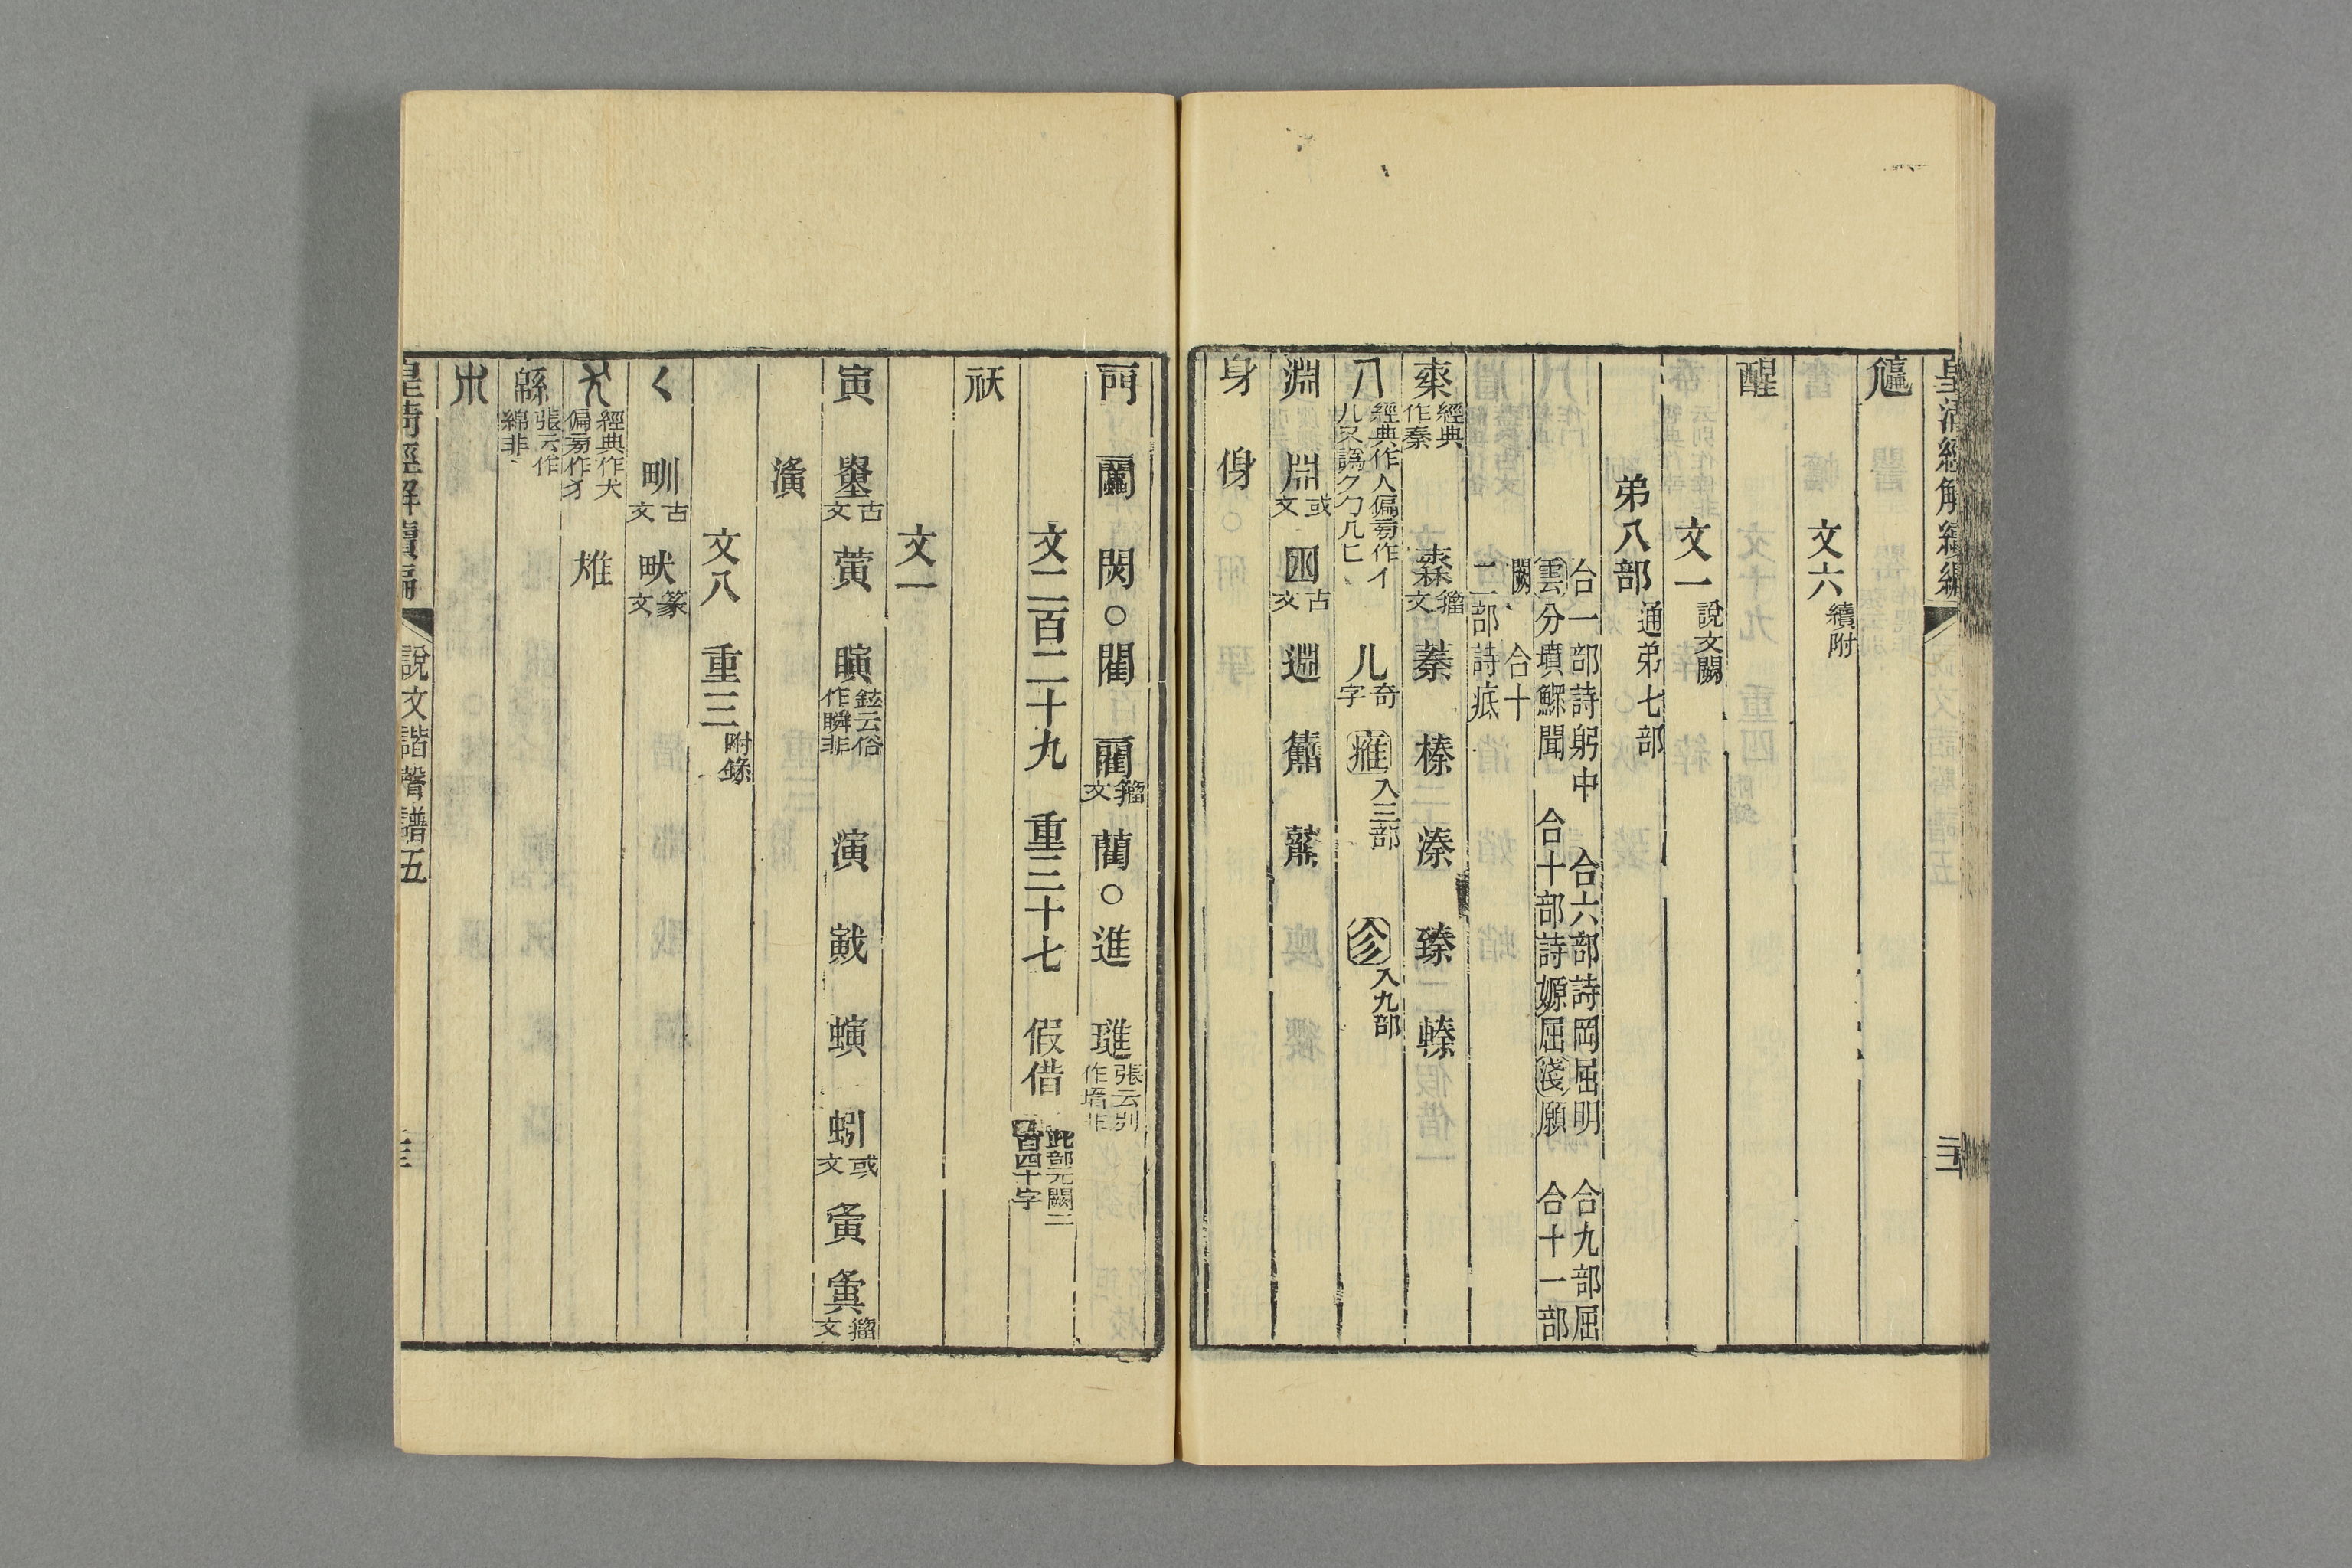 皇清經解續編
文六 續附
醒
文一 說文闕
弟八部 通弟七部
合一部詩躬中 合六部詩岡屈明 合九部屈
雲分墳鰥聞 合十部詩嫄屈淺願 合十一部
闕 合十
二部詩疧
桼 經典作秦 籀文 蓁 榛 溱 臻 螓
經典作人偏旁作亻 儿 奇字 入三部 入九部
淵 𣶒 或文 囦 古文
身 㑗
閃 ○ 閵 籀文 藺 ○ 進 璡 張云別作瑨非
文二百二十九 重三十七 假借 此部元闕二百四十字
祆
文一
寅 古文 鉉云俗作瞬非 演 戭 螾 蚓 或文 夤 籀文
濥
文八 重三 附錄
𡿨 甽 古文 畎 篆文
經典作犬偏旁作犭
緜 張云作綿非
皇清經解續編 說文諧聲譜五